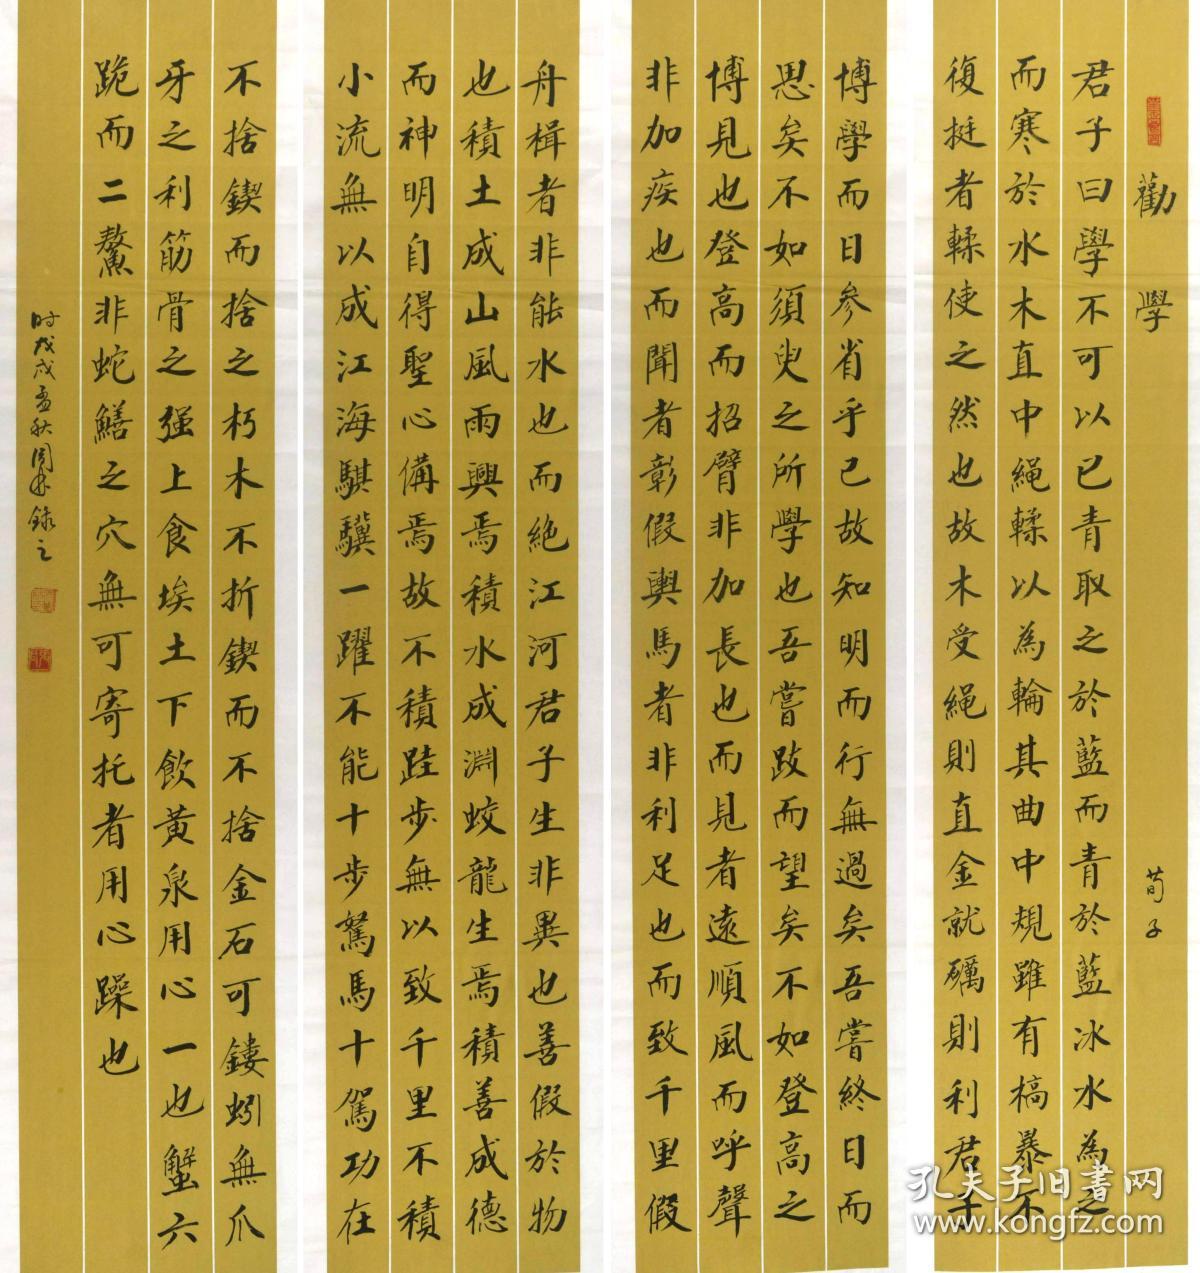 勸學 荀子
君子曰學不可以已青取之於藍而青於藍冰水為之
而寒於水木直中繩輮以為輪其曲中規雖有槁暴不
復挺者輮使之然也故木受繩則直金就礪則利君子
博學而日參省乎己故知明而行無過矣吾嘗終日而
思矣不如須臾之所學也吾嘗跂而望矣不如登高之
博見也登高而招臂非加長也而見者遠順風而呼聲
非加疾也而聞者彰假輿馬者非利足也而致千里假
舟楫者非能水也而絕江河君子生非異也善假於物
也積土成山風雨興焉積水成淵蛟龍生焉積善成德
而神明自得聖心備焉故不積跬步無以致千里不積
小流無以成江海騏驥一躍不能十步駑馬十駕功在
不捨鍥而捨之朽木不折鍥而不捨金石可鏤蚓無爪
牙之利筋骨之强上食埃土下飲黃泉用心一也蟹六
跪而二螯非蛇鱔之穴無可寄托者用心躁也
时戊戌孟秋周林錄之
孔夫子旧书网
www.kongfz.com